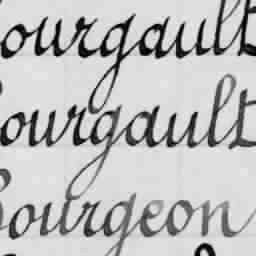 ourgault
ourgault
Bourgeon